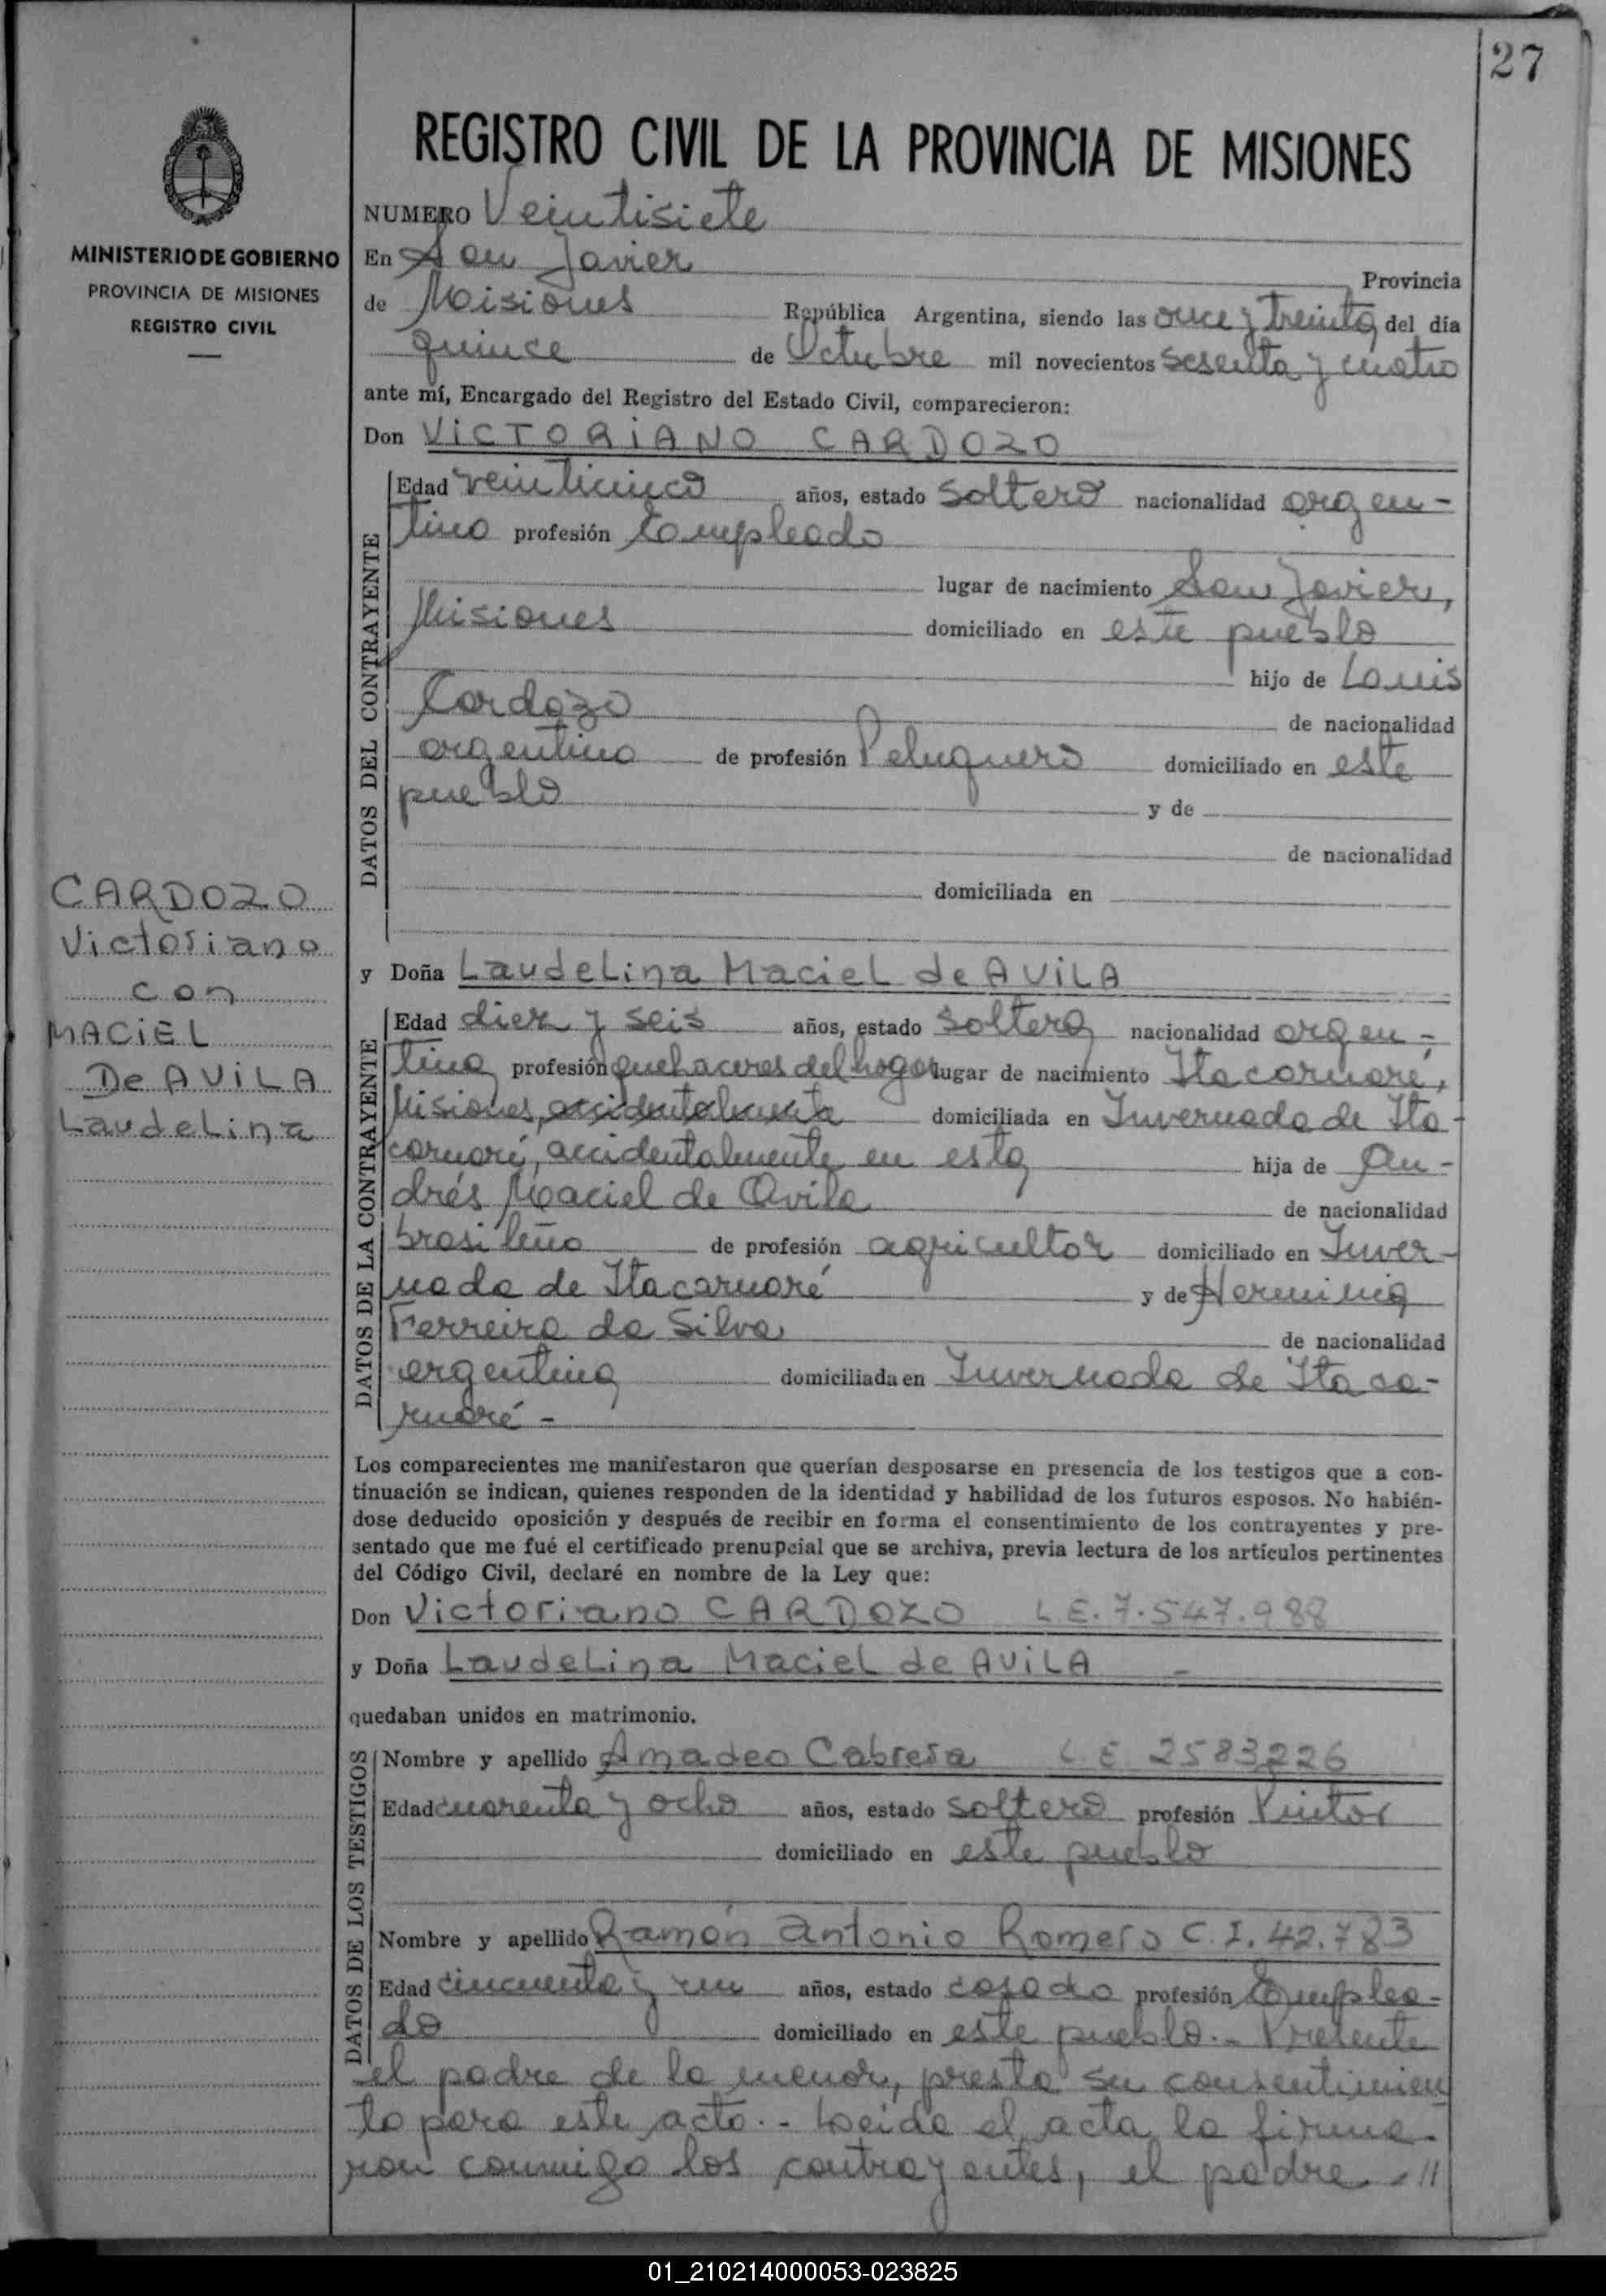 27
REGISTRO CIVIL DE LA PROVINCIA DE MISIONES
MINISTERIO DE GOBIERNO
PROVINCIA DE MISIONES
REGISTRO CIVIL
CARDOZO
Victoriano
con
MACIEL
De AVILA
Laudelina
NUMERO Veintisiete
En San Javier Provincia
de Misiones República Argentina, siendo las once y treinta del día
quince de Octubre mil novecientos sesenta y cuatro
ante mí, Encargado del Registro del Estado Civil, comparecieron:
Don VICTORIANO CARDOZO
DATOS DEL CONTRAYENTE
Edad veinticinco años, estado soltero nacionalidad argen-
tino profesión Empleado
lugar de nacimiento San Javier,
Misiones domiciliado en este pueblo
hijo de Louis
Cardozo de nacionalidad
argentino de profesión Peluquero domiciliado en este
pueblo y de
de nacionalidad
domiciliada en
y Doña Laudelina Maciel de AVILA
DATOS DE LA CONTRAYENTE
Edad diez y seis años, estado soltera nacionalidad argen-
tina profesión quehaceres del hogar lugar de nacimiento Itacaruaré,
Misiones, accidentalmente domiciliada en Invernada de Ita-
caruaré, accidentalmente en esta hija de An-
drés Maciel de Avila de nacionalidad
brasileño de profesión agricultor domiciliado en Inver-
nada de Itacaruaré y de Herminia
Ferreira da Silva de nacionalidad
argentina domiciliada en Invernada de Itaca-
ruaré -
Los comparecientes me manifestaron que querían desposarse en presencia de los testigos que a con-
tinuación se indican, quienes responden de la identidad y habilidad de los futuros esposos. No habién-
dose deducido oposición y después de recibir en forma el consentimiento de los contrayentes y pre-
sentado que me fué el certificado prenupcial que se archiva, previa lectura de los artículos pertinentes
del Código Civil, declaré en nombre de la Ley que:
Don Victoriano CARDOZO L.E. 7.547.988
y Doña Laudelina Maciel de AVILA -
quedaban unidos en matrimonio.
DATOS DE LOS TESTIGOS
Nombre y apellido Amadeo Cabrera L.E. 2583226
Edad cuarenta y ocho años, estado soltero profesión Pintor
domiciliado en este pueblo
Nombre y apellido Ramón Antonio Romero C.I. 42.783
Edad cincuenta y un años, estado casado profesión Emplea-
do domiciliado en este pueblo.- Presente
el padre de la menor, presta su consentimien
to para este acto.- Leida el acta la firma-
ron conmigo los contrayentes, el padre -//
01_210214000053-023825